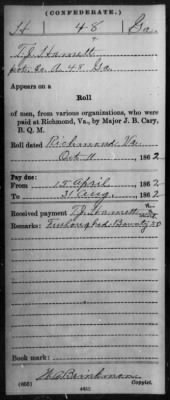 (CONFEDERATE.)
H 48 Ga.
T. J. Hamett
Co. A. 48 Ga.
Appears on a
Roll
of men, from various organizations, who were
paid at Richmond, Va., by Major J. B. Cary,
B. Q. M.
Roll dated Richmond Va.
Oct 11, 1862
Pay due:
From 1st April, 1862
To 31 Aug, 1862
Received payment T. J. Hamett
Remarks: Furloughed. Bounty 50
Book mark:
Brinkman
(655) Copyist.